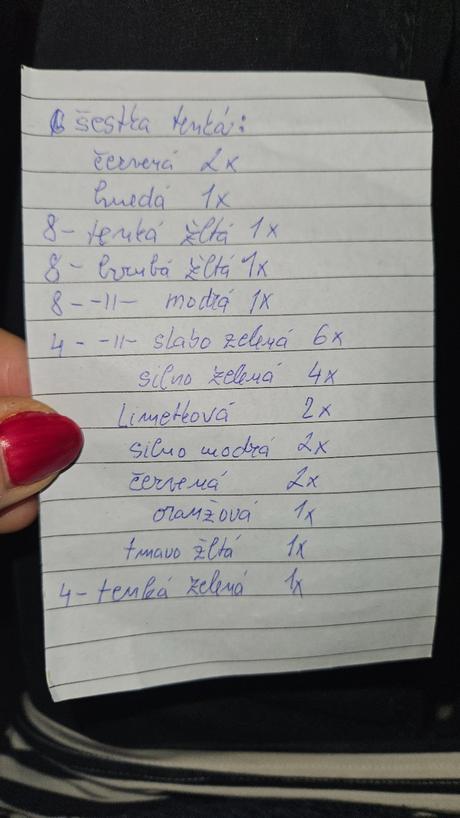 šestka tenká:
červená 2x
hnedá 1x
8- tenká žltá 1x
8- hrubá žltá 1x
8- -11- modrá 1x
4- -11- slabo zelená 6x
silno zelená 4x
Limetková 2x
silno modrá 2x
červená 2x
oranžová 1x
tmavo žltá 1x
4- tenká zelená 1x